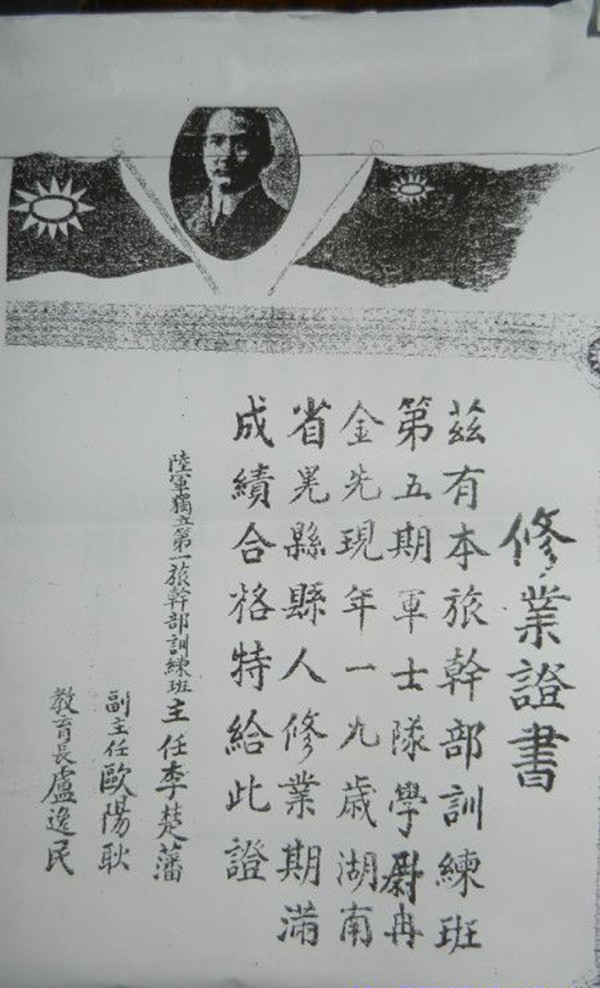 修業證書
茲有本旅幹部訓練班
第五期軍士隊學尉冉
金先現年一九歲湖南
省晃縣縣人修業期滿
成績合格特給此證
陸軍獨立第一旅幹部訓練班主任李楚藩
副主任歐陽耿
教育長盧逸民